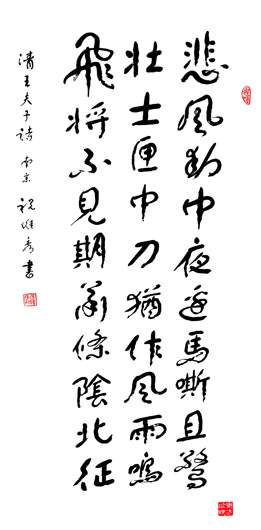 悲風動中夜邊馬嘶且驚
壯士匣中刀猶作風雨鳴
飛將不見期蕭條陰北征
清王夫子詩 南京 祝秀書